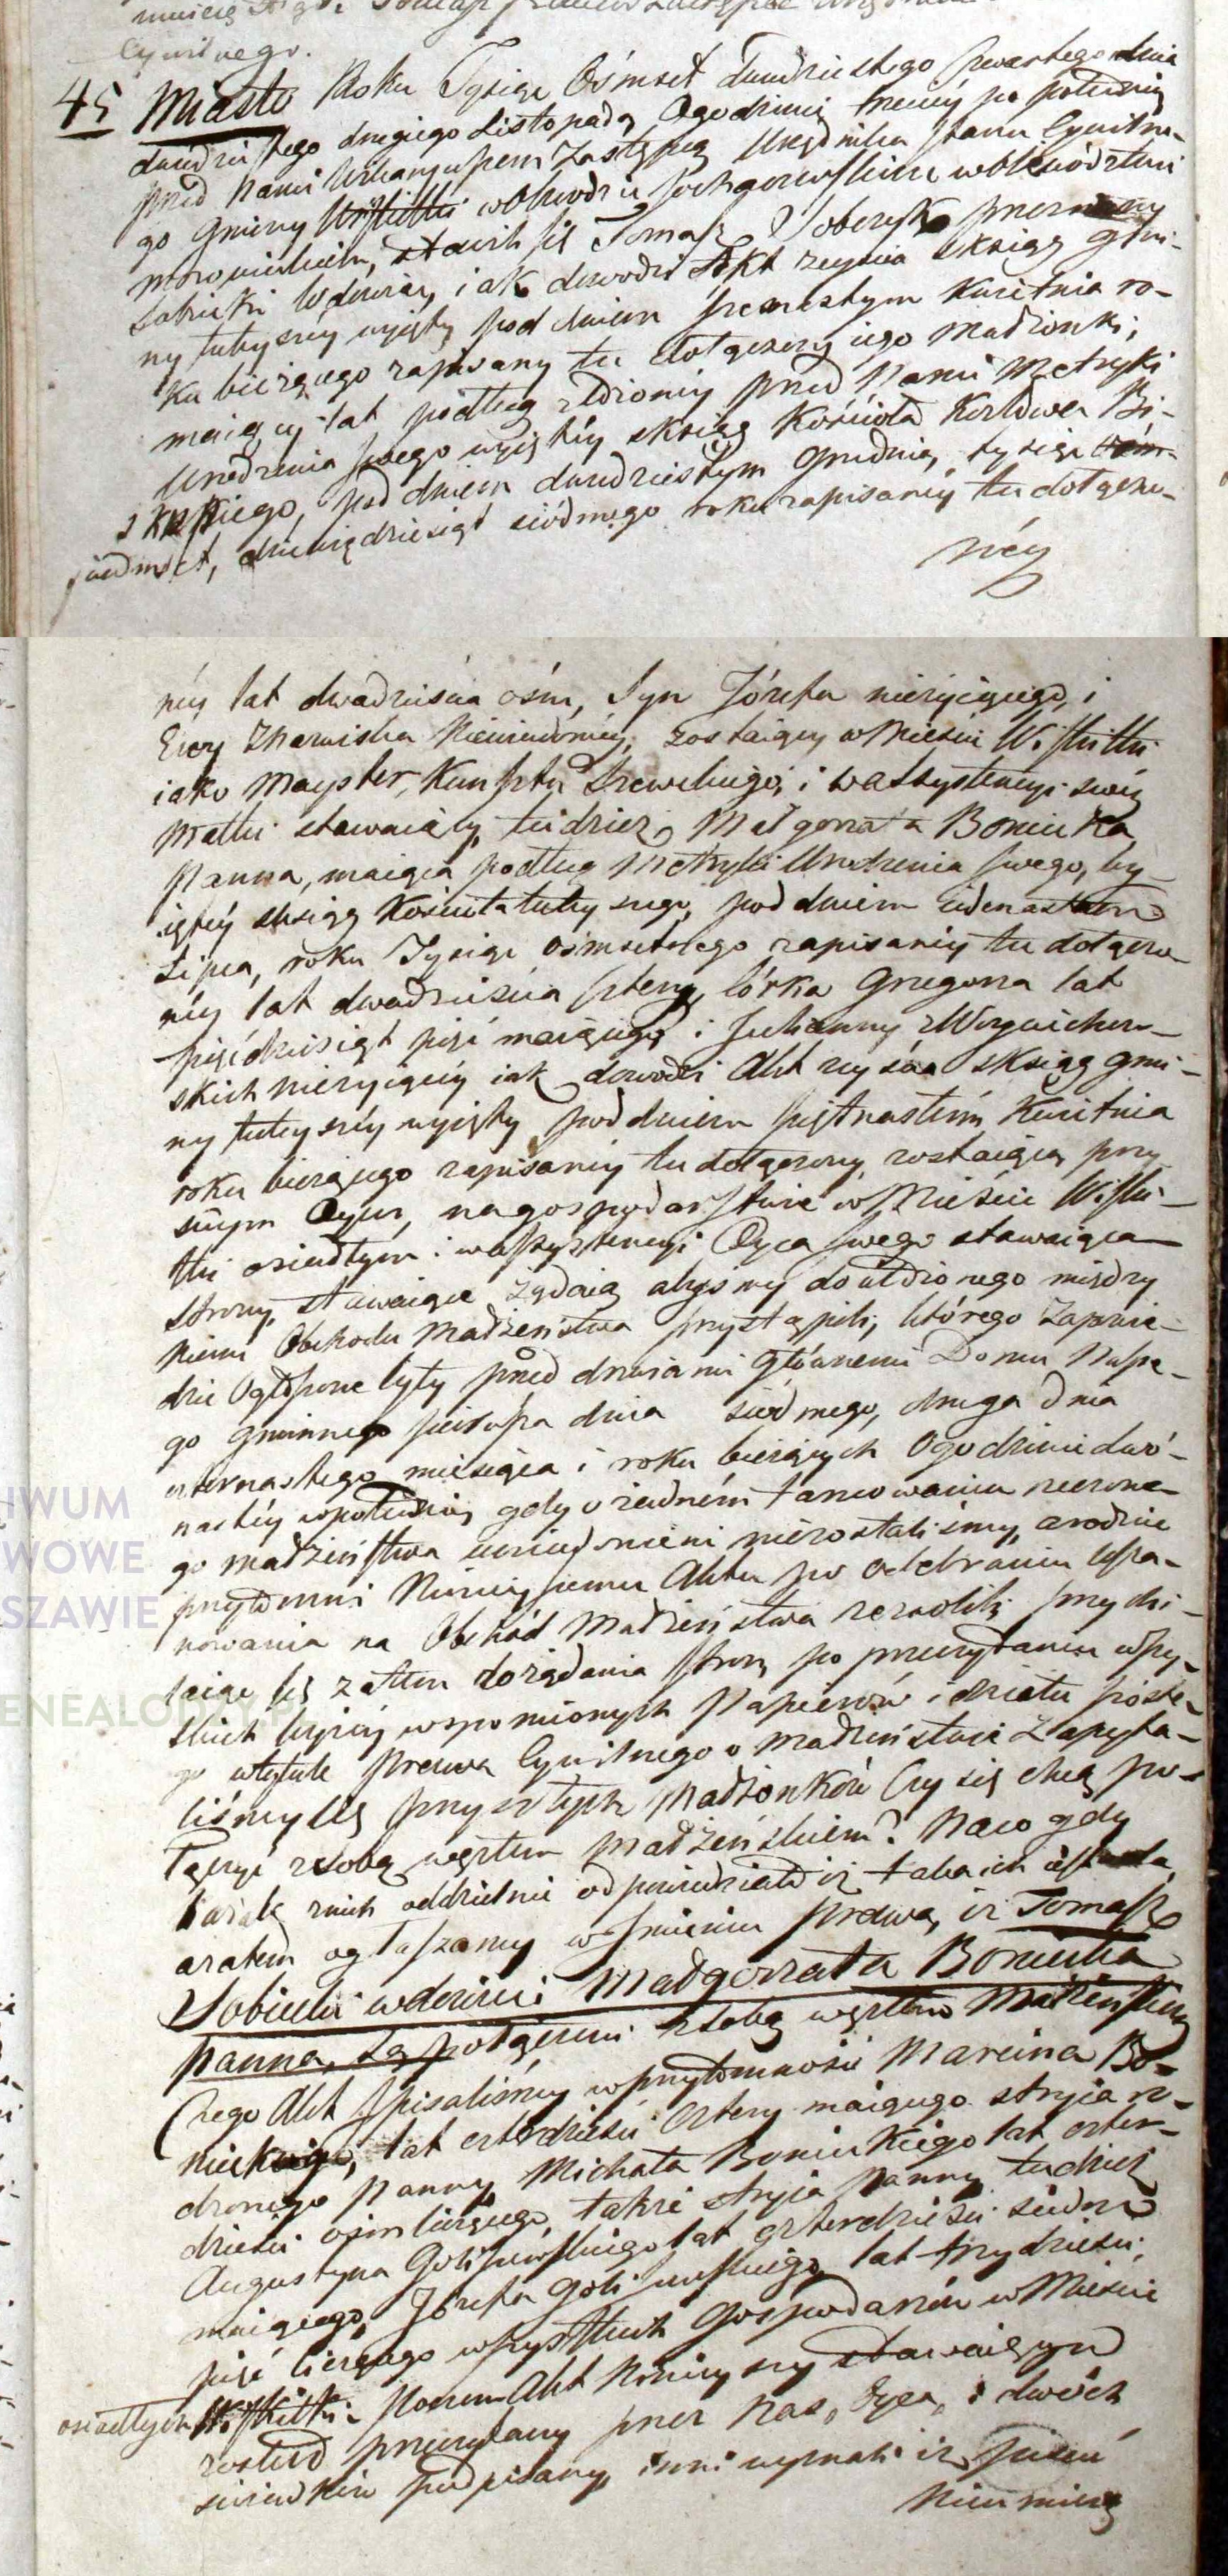 Cywilnego.
45 Miasto Roku Tysiąc Ośmset dwudziestego czwartego dnia
dwudziestego drugiego Listopada, Ogodzinie trzeciey po południu
przed Nami Zastępcą Urzędnika stanu Cywilne-
go Gminy Wiskitki w Obwodzie Sochaczewskim w Woiewództwie
mazowieckiem, stawił się Tomasz
Sobiecki Wdowiec, iak dowodzi Akt zeyścia z ksiąg gmi-
ny tuteyszey wyięty pod dniem Kwietnia ro-
ku bieżącego zapisany tu dołączony iego małżonki,
maiący lat podług złożoney przed Nami Metryki
Urodzenia swego wyiętey z ksiąg Kościoła Bi-
skupiego, pod dniem dwudziestym Grudnia, tysiąc
siedmset, dziewiędziesiąt siódmego roku zapisaney tu dołączo-
néy
néy lat dwadzieścia ośm, Syn Józefa nieżyiącego, i
Ewy Niewiadomey, zostaiący w Mieście Wiskitki
iako Mayster Kunsztu Szewckiego, i w assystencyi swéy
Matki stawaiący, tudzież Małgorzata Boniecka
Panna, maiąca podług Metryki Urodzenia swego, wy-
iętéy z ksiąg Kościoła tuteyszego, pod dniem iedenastem
Lipca, roku Tysiąc Ośmsetnego zapisaney tu dołączo-
néy lat dwadzieścia cztery, Córka Grzegorza lat
pięćdziesiąt pięć maiącego i Julianny z Woyciechow-
skich nieżyiącéy iak dowodzi Akt zeyścia z ksiąg gmi-
ny tuteyszéy wyięty pod dniem piętnastém Kwietnia
roku bieżącego zapisaney tu dołączony, zostaiąca przy
swym Oycu, na gospodarstwie w Mieście Wiski-
tki osiadłym i w assystencyi Oyca swego stawaiąca
Strony stawaiące żądaią abyśmy do ułożonego między
niemi Obchodu Małżeństwa przystąpili, którego Zapowie-
dzie Ogłoszone były przed drzwiami Głównemi Domu Nasze-
go gminnego pierwsza dnia siódmego, druga dnia
czternastego miesiąca i roku bieżących Ogodzinie dwó-
nastéy w południe, gdy o żadném tamowaniu rzeczone-
go małżeństwa uwiadomieni niezostaliśmy, a rodzice
przytomni Ninieyszemu Aktu po odebraniu Usza-
nowania na Obchód Małżeństwa zezwolili, przychi-
laiąc się zatem do żądania stron, po przeczytaniu wszy-
stkich wyżéy wspomnionych Papierów i działu szóste-
go w tytule Prawa Cywilnego o małżeństwie Zapyta-
liśmy się przyszłych Małżonków Czy się chcą po-
łączyć z sobą węzłem Małżeńskiem? Na co gdy
każde z nich oddzielnie odpowiedziało iż taka ich
a zatem ogłaszamy w Imieniu prawa, iż Tomasz
Sobiecki wdowiec i Małgorzata Boniecka
Panna, są połączeni z sobą węzłem Małżeńskim
Czego Akt spisaliśmy w przytomności Marcina Bo-
nieckiego, lat czterdzieści cztery maiącego stryia ro-
dzonego Panny Michała Bonieckiego lat czter-
dzieści ośm liczącego, także stryia Panny, tudzież
Augustyna lat czterdzieści siedm
maiącego, Józefa lat trzydzieści
pięć liczącego wszystkich Gospodarzów w Mieście
osiadłych Wiskitki Akt Ninieyszy stawaiącym
został przeczytany przez Nas, Oyca, i dwóch
świadków podpisany, inni wyznali iż pisać
nieumieią